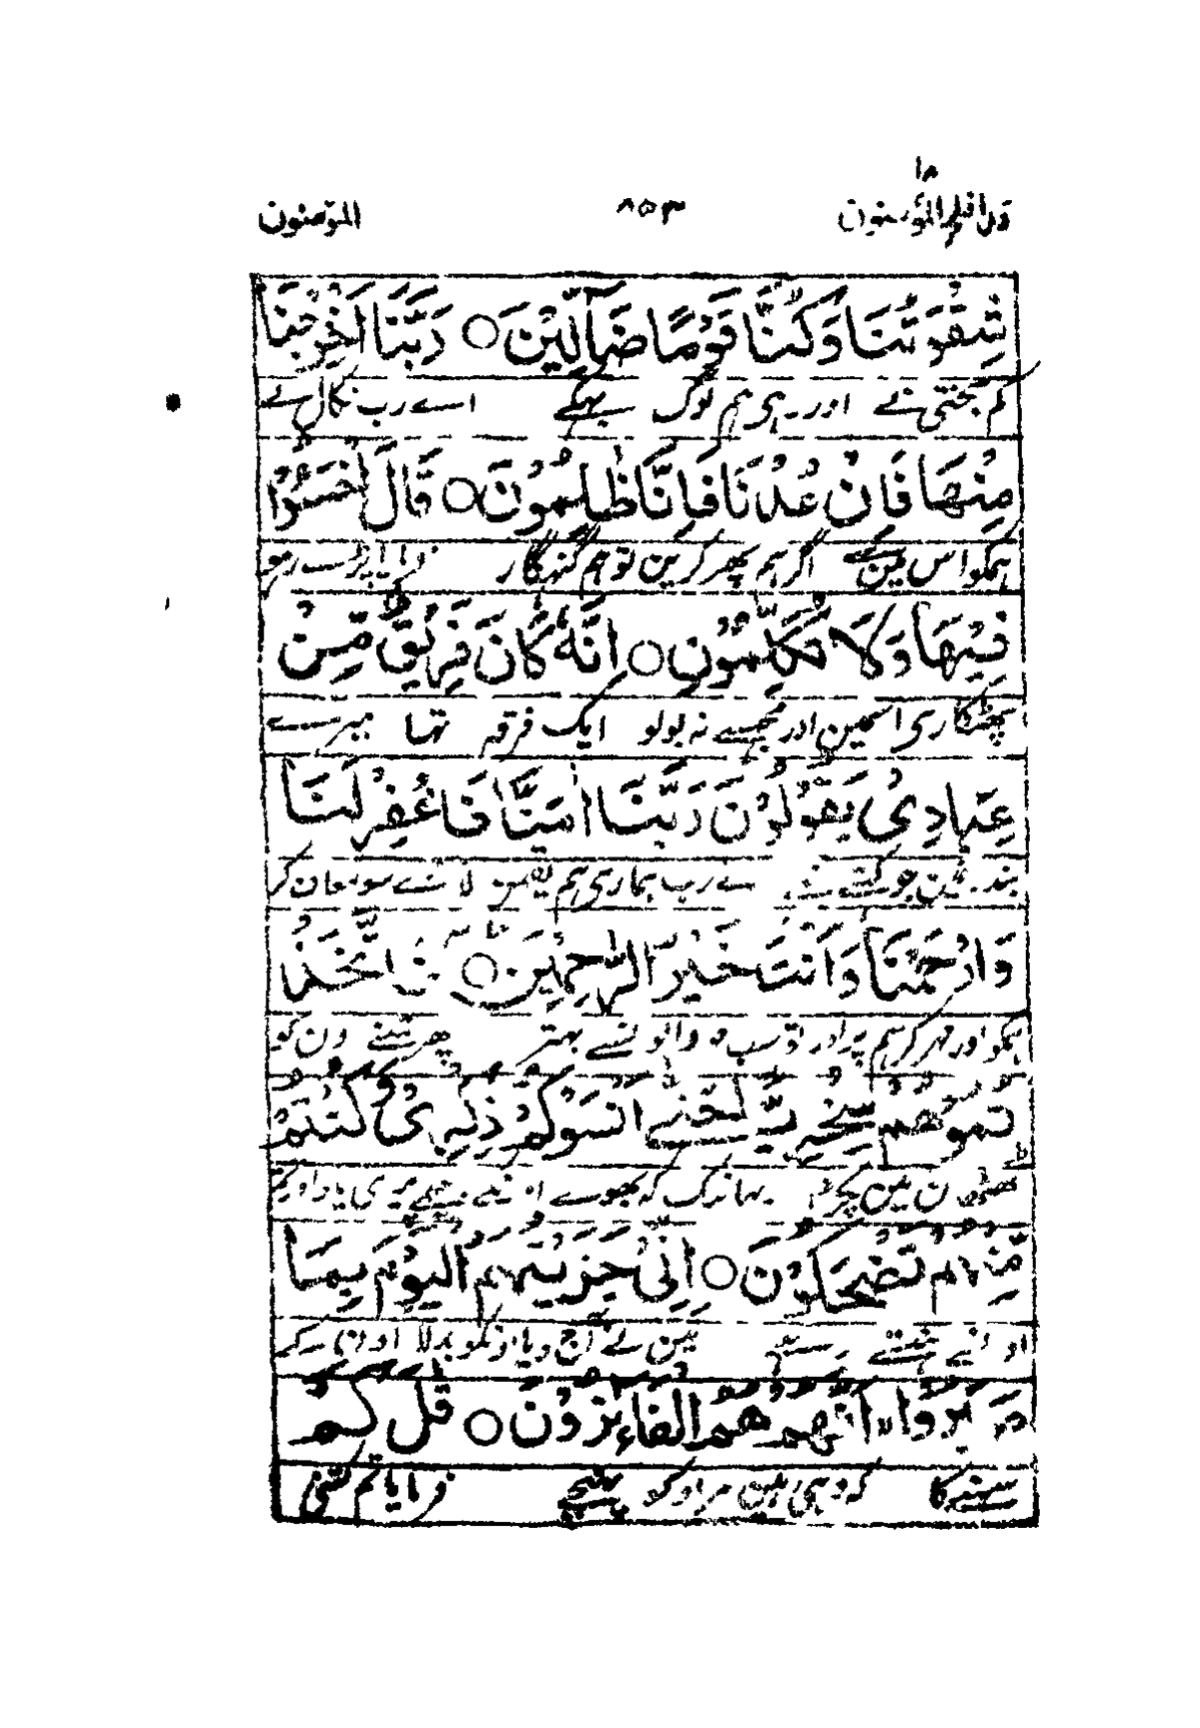 ۱۸
قد افلح المؤمنون ۸۵۳ المؤمنون
شِقْوَتُنَا وَكُنَّا قَوْمًا ضَآلِّیْنَ ○ رَبَّنَا اَخْرِجْنَا
کم بختی نے اور رہی ہم لوگ بہکے اے رب نکال لے
مِنْهَا فَاِنْ عُدْنَا فَاِنَّا ظٰلِمُوْنَ ○ قَالَ اخْسَئُوْا
ہمکو اس مین سے اگر ہم پھر کرین تو ہم گنہگار فرمایا پڑے رہو
فِیْهَا وَلَا تُكَلِّمُوْنِ ○ اِنَّهٗ كَانَ فَرِیْقٌ مِّنْ
پھٹکاری اسمین اور مجھسے نہ بولو ایک فرقہ تھا میرے
عِبَادِیْ یَقُوْلُوْنَ رَبَّنَا اٰمَنَّا فَاغْفِرْ لَنَا
جو کہتے تھے اے رب ہماری ہم یقین لائے سو معاف کر
وَارْحَمْنَا وَاَنْتَ خَیْرُ الرّٰحِمِیْنَ ○ فَاتَّخَذْ
ہمکو اور مہر کر ہم پر اور تو سب والونسے بہتر پھر تمنے اون کو
تُمُوْهُمْ سِخْرِیًّا حَتّٰی اَنْسَوْكُمْ ذِكْرِیْ وَكُنْتُمْ
مین پکڑا یہانتک کہ بھولے اونکے پیچھے میری یاد اور تم
مِّنْهُمْ تَضْحَكُوْنَ ○ اِنِّیْ جَزَیْتُهُمُ الْیَوْمَ بِمَا
اونسے ہنستے رہے مین نے آج دیا اونکو بدلا اون کے
صَبَرُوْا اَنَّهُمْ هُمُ الْفَآئِزُوْنَ ○ قٰلَ كَمْ
سہنے کا کہ وہی ہین مراد کو پہنچے فرمایا تم کتنی